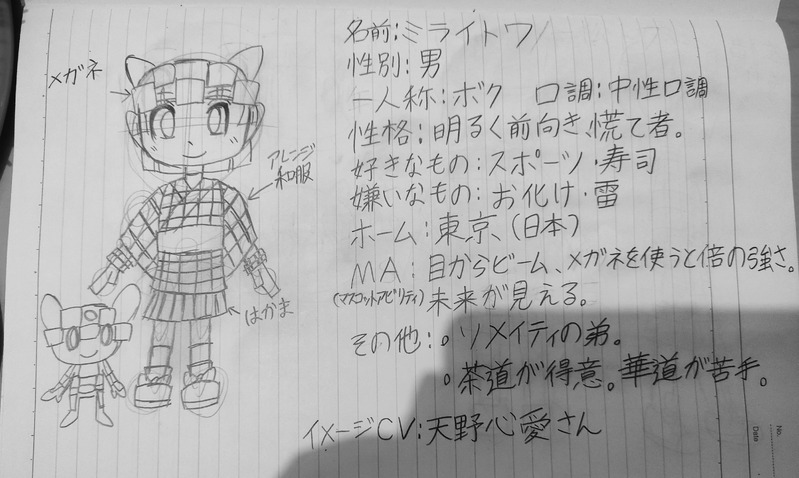 メガネ
アレンジ
和服
はかま
名前:ミライトワ
性別:男
一人称:ボク 口調:中性口調
性格:明るく前向き、慌て者。
好きなもの:スポーツ・寿司
嫌いなもの:お化け・雷
ホーム:東京、(日本)
MA:目からビーム、メガネを使うと倍の強さ。
(マスコットアビリティ) 未来が見える。
その他:。ソメイティの弟。
。茶道が得意。華道が苦手。
イメージCV:天野心愛さん
No.
Date